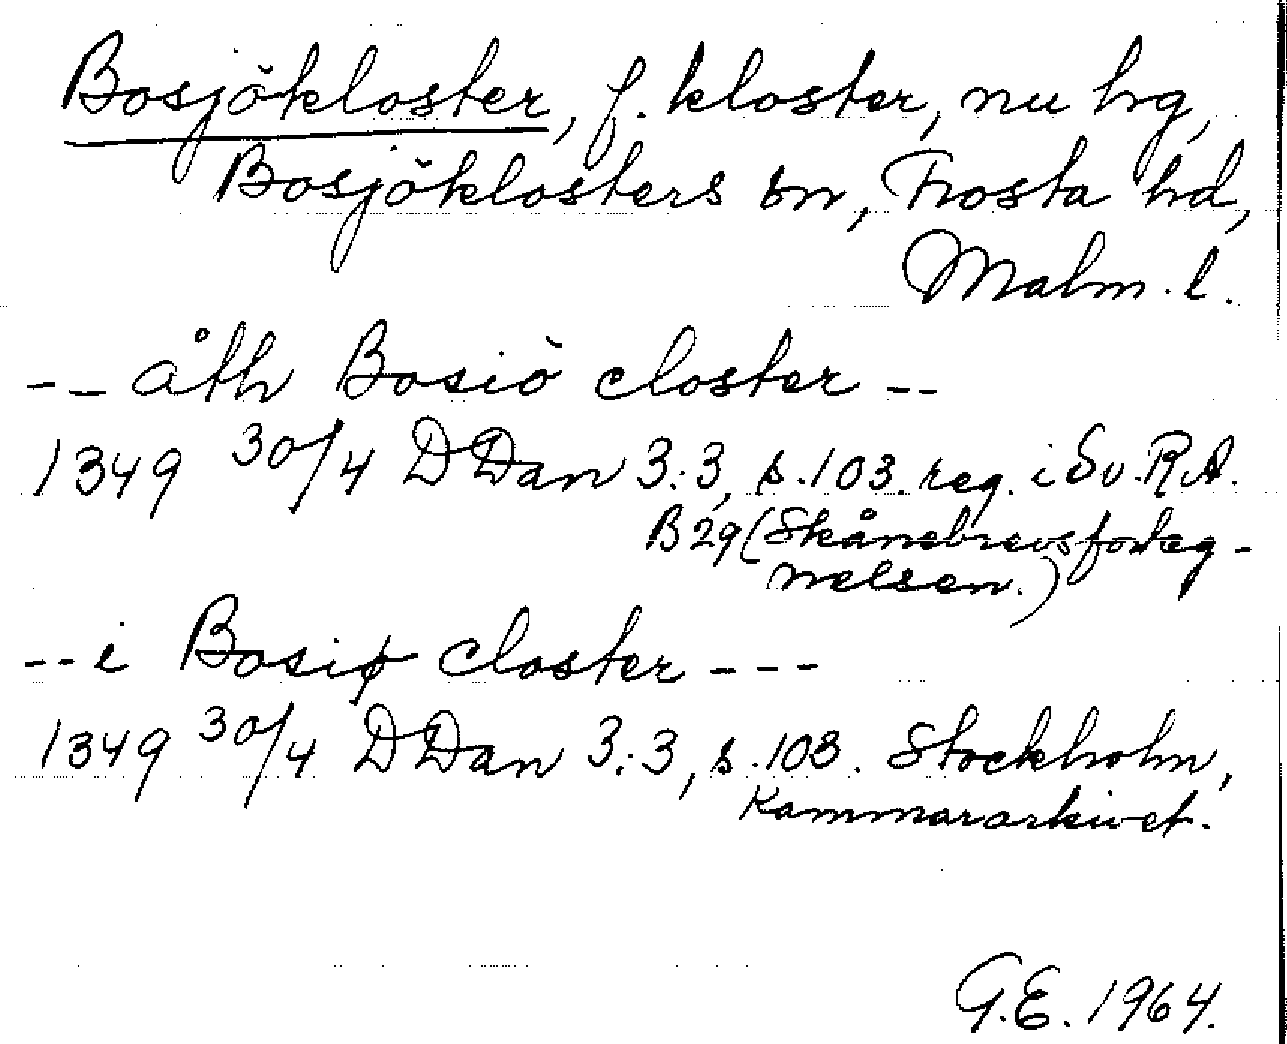 Bosjökloster, f. kloster, nu hg,
Bosjöklosters sn, Frosta hd,
Malm. l.
-- åth Bosiö closter --
1349 30/4 DDan 3:3, s. 103. reg. i Sv. R.A.
B 29 (Skånebrevsforteg-
nelsen.)
-- i Bosiø closter ---
1349 30/4 DDan 3:3, s. 103. Stockholm,
Kammararkivet.
G.E. 1964.